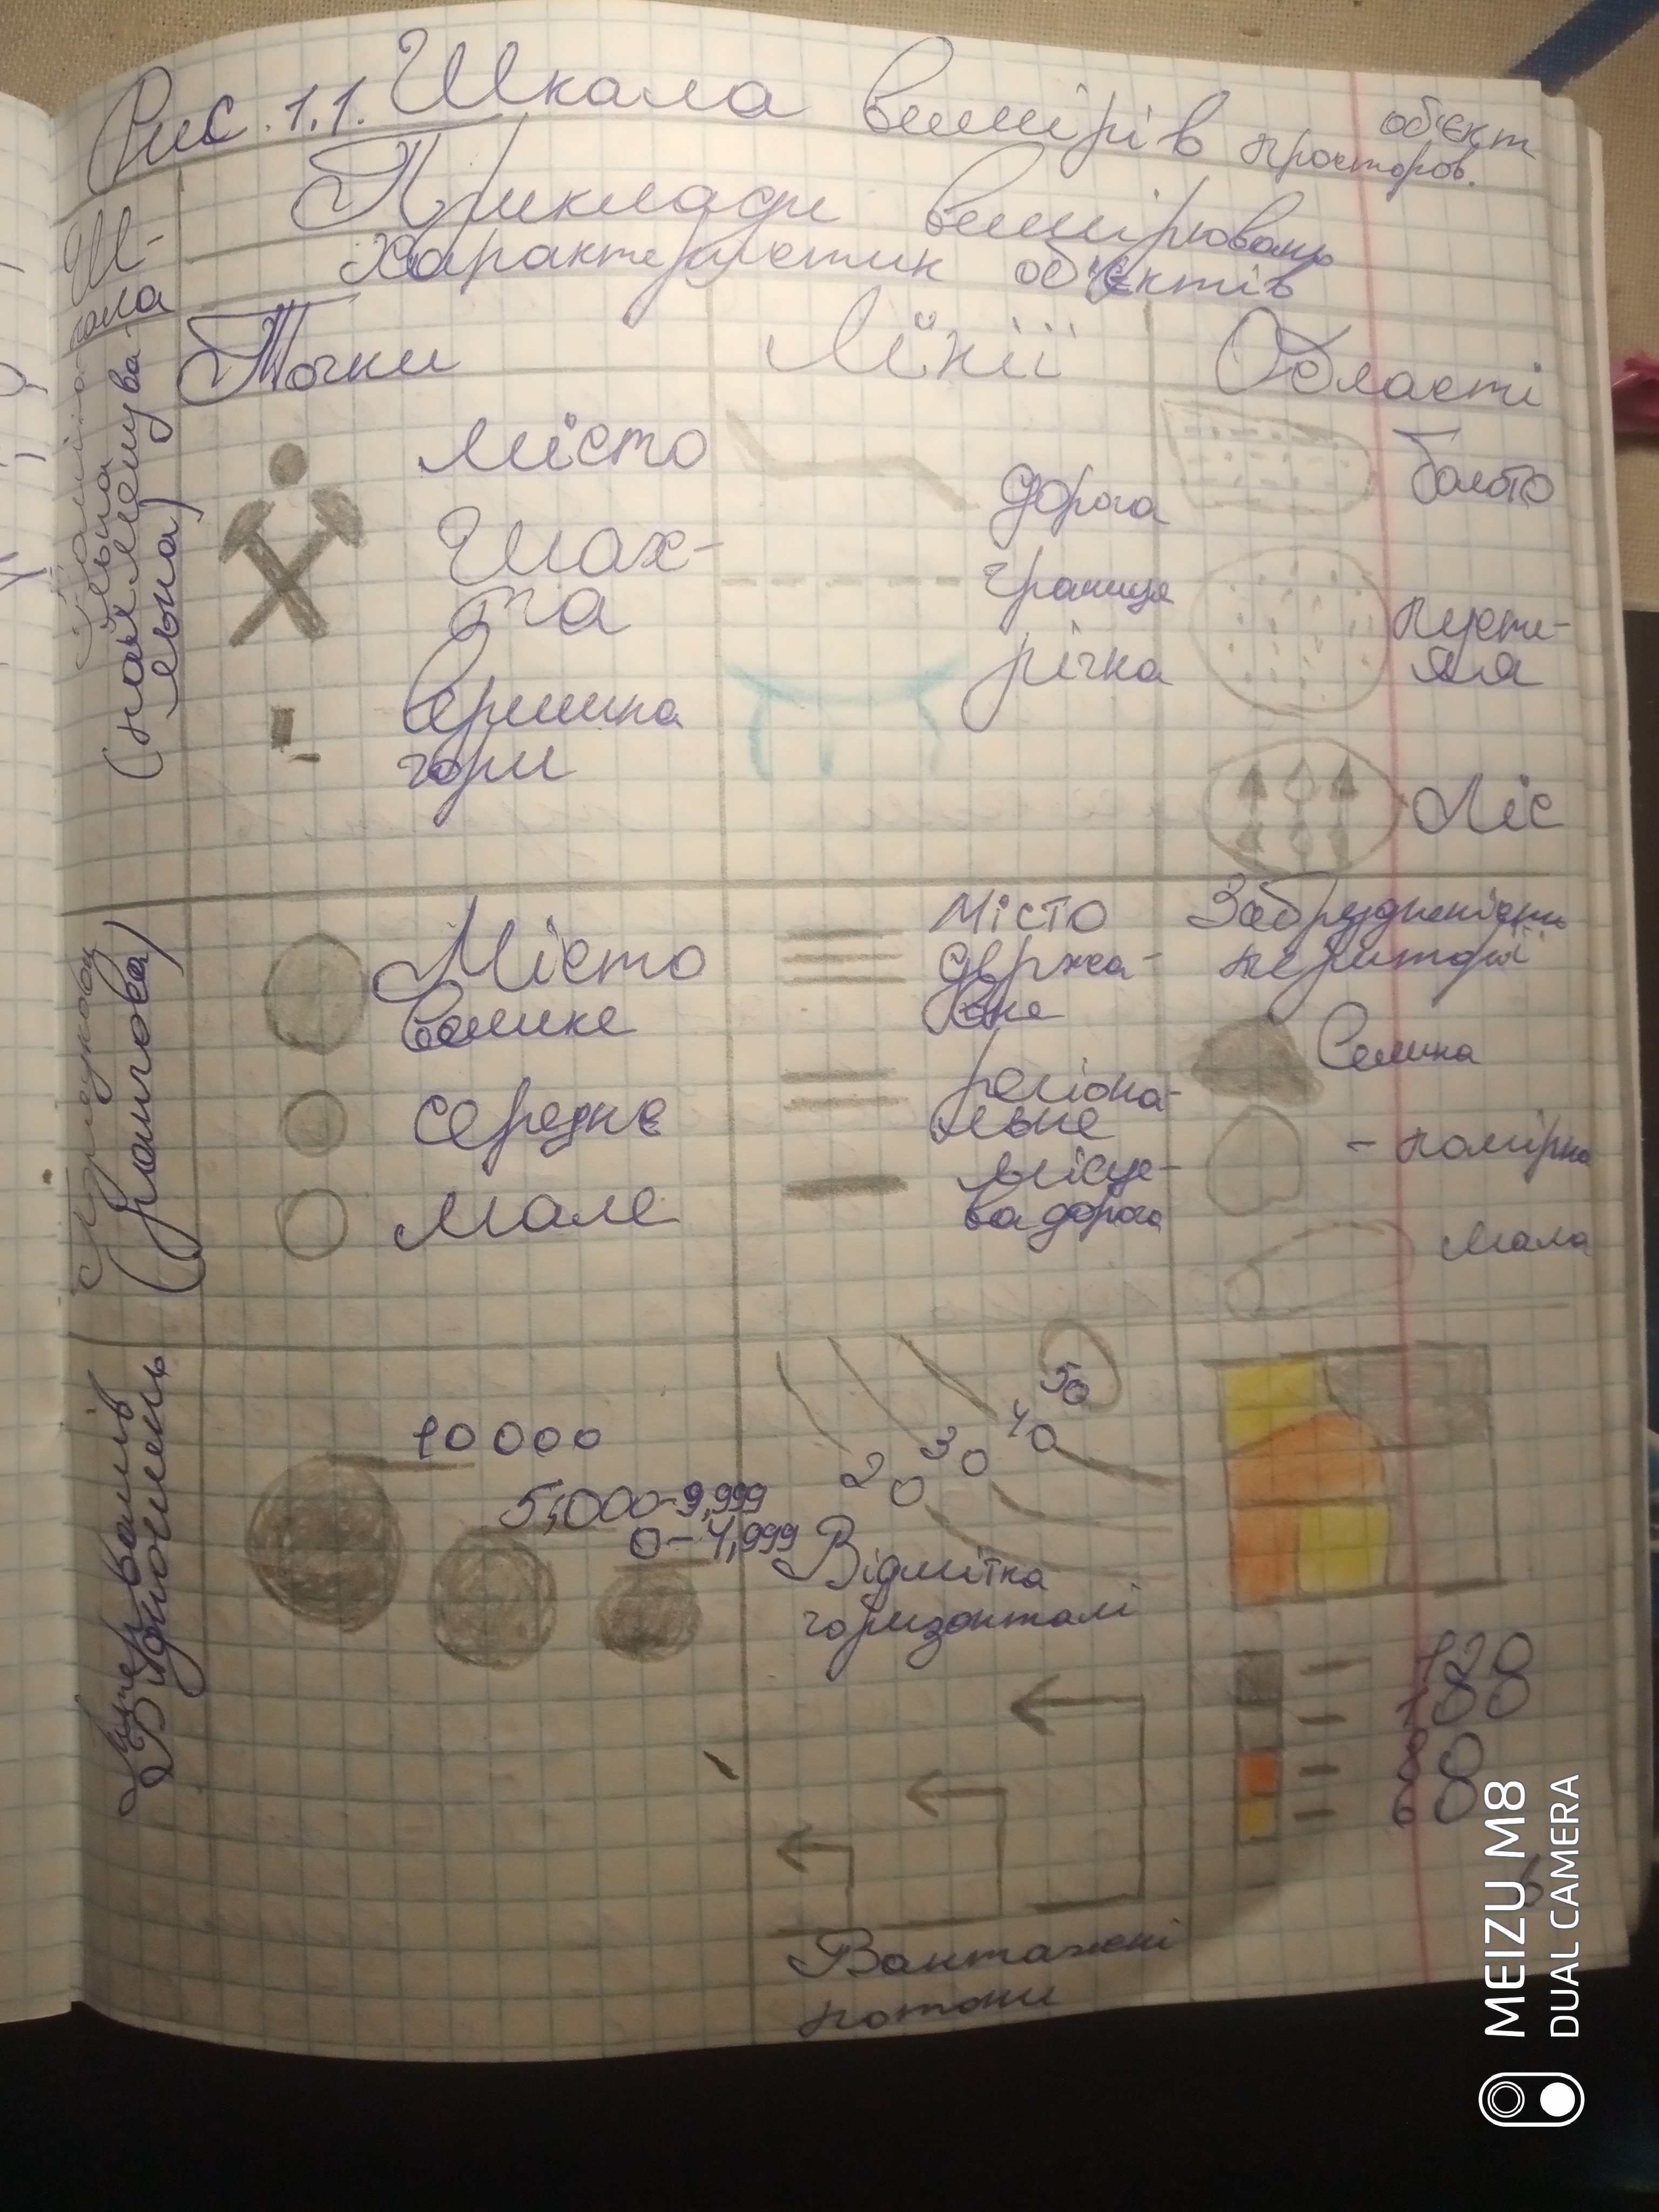 Рис. 1.1. Шкала вимірів просторов. об'єкт
Шкала
Приклади вимірювань
характеристик об'єктів
Точки
Лінії
Області
Номіна
льна
(найменува
льна)
місто
Шах-
та
Вершина
гори
дорога
границя
річка
болото
пусте-
ля
Ліс
Порядкова
(рангова)
Місто
велике
середнє
мале
Місто
держа-
вне
регіона-
льне
місце-
ва дорога
Забрудненість
території
Велика
- помірна
мала
Інтервалів
Відношень
10 000
5,000-9,999
0-4,999
20 30 40 50
Відмітка
горизонталі
Вантажні
потоки
120
100
80
60
MEIZU M8
DUAL CAMERA